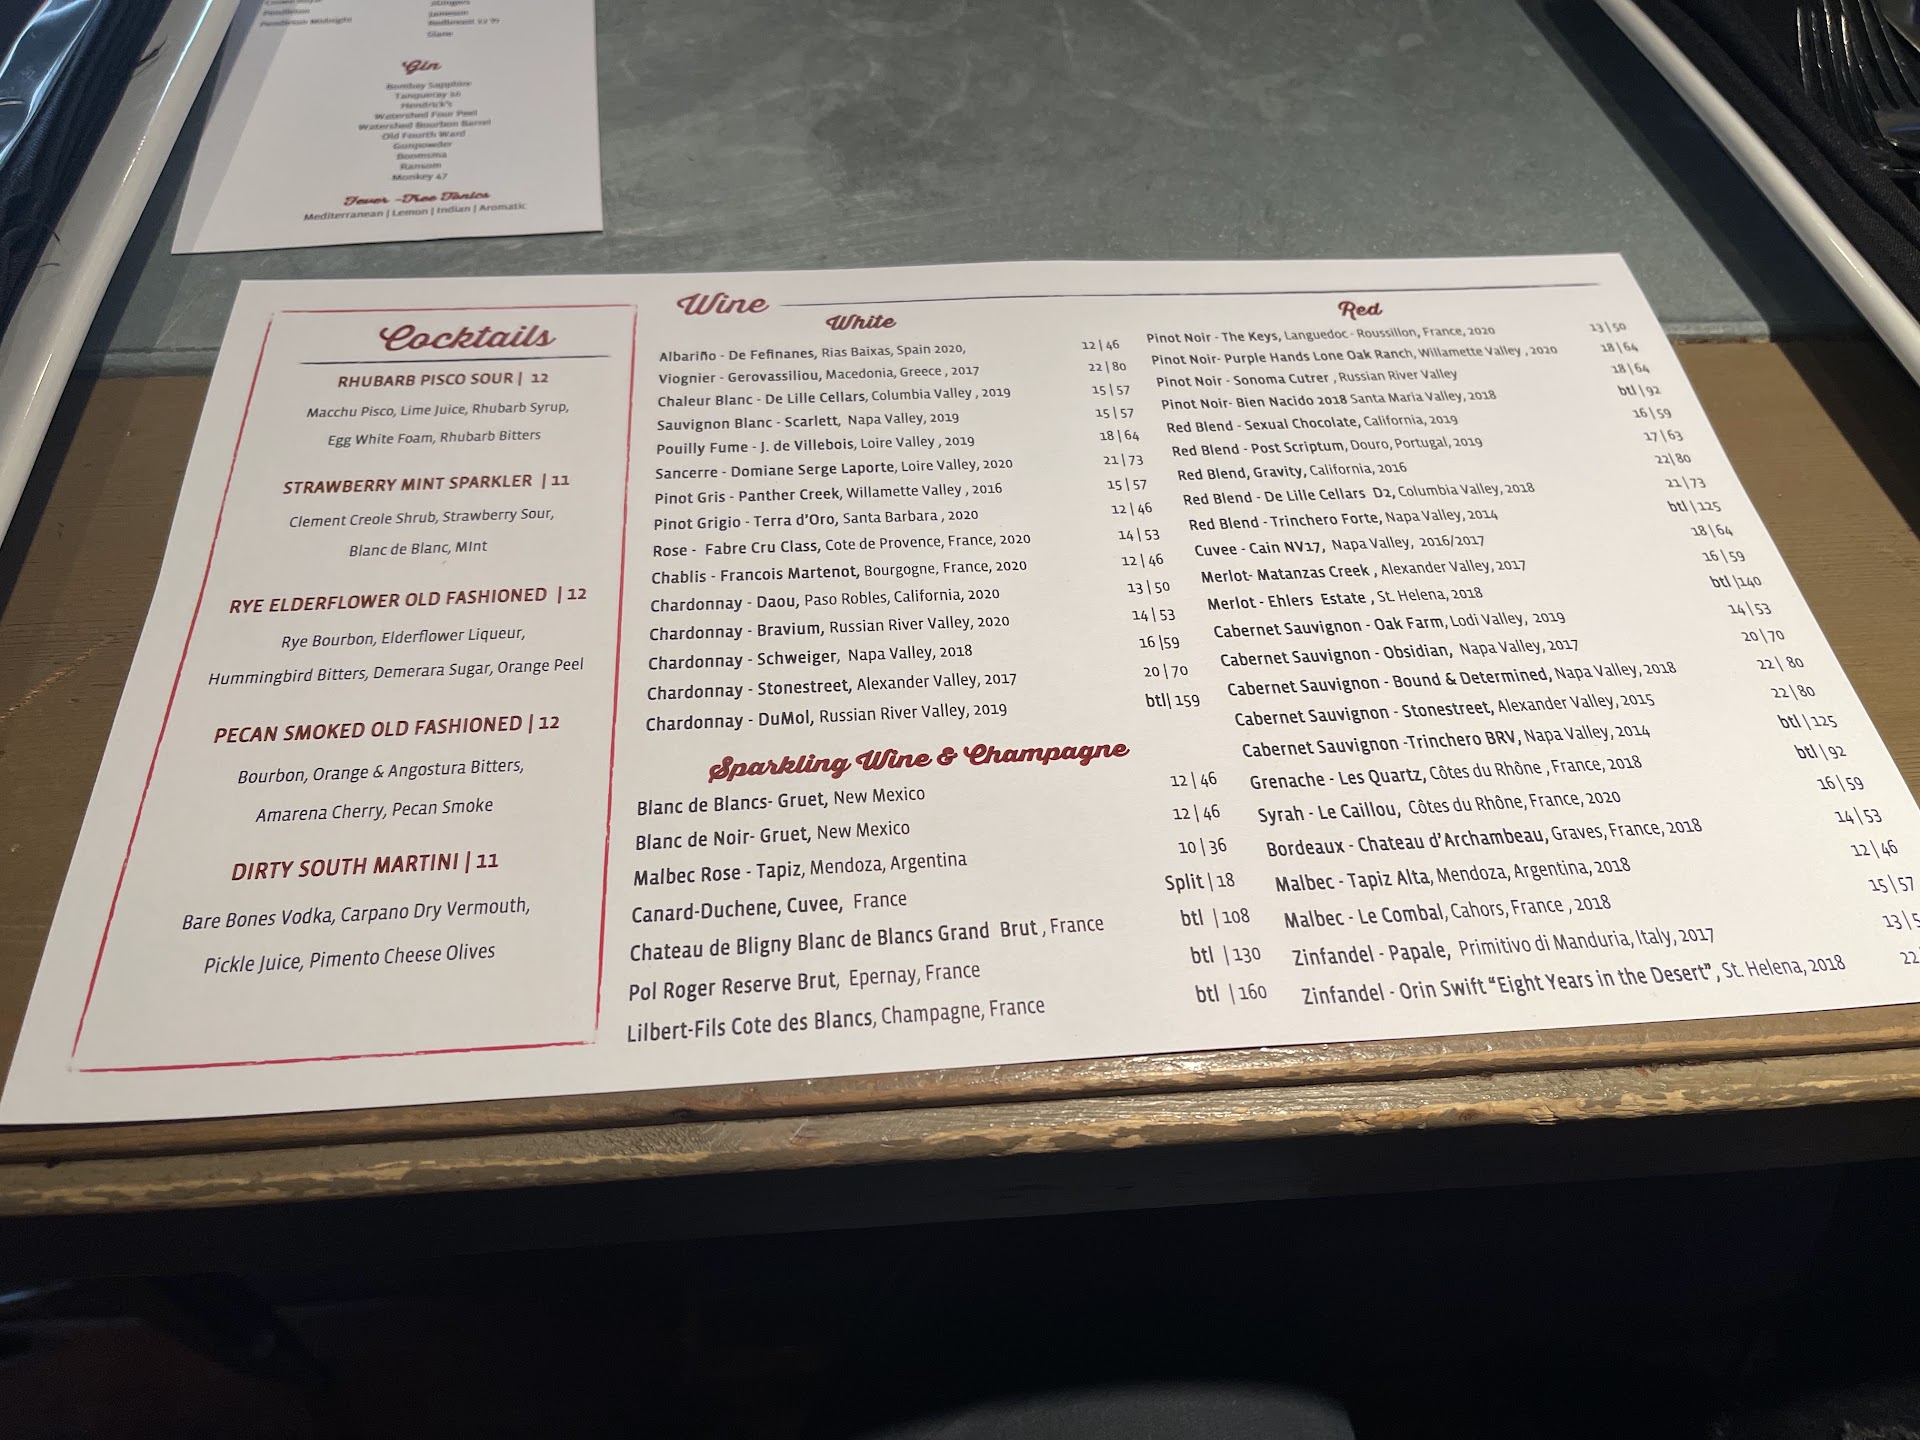 Pendleton
Pendleton Midnight
Jameson
Slane
Gin
Bombay Sapphire
Tanqueray
Hendrick's
Watershed Four Peel
Watershed Bourbon Barrel
Old Fourth Ward
Gunpowder
Boomsma
Ransom
Monkey 47
Fever -Tree Tonics
Mediterranean | Lemon | Indian | Aromatic
Cocktails
RHUBARB PISCO SOUR | 12
Macchu Pisco, Lime Juice, Rhubarb Syrup,
Egg White Foam, Rhubarb Bitters
STRAWBERRY MINT SPARKLER | 11
Clement Creole Shrub, Strawberry Sour,
Blanc de Blanc, MInt
RYE ELDERFLOWER OLD FASHIONED | 12
Rye Bourbon, Elderflower Liqueur,
Hummingbird Bitters, Demerara Sugar, Orange Peel
PECAN SMOKED OLD FASHIONED | 12
Bourbon, Orange & Angostura Bitters,
Amarena Cherry, Pecan Smoke
DIRTY SOUTH MARTINI | 11
Bare Bones Vodka, Carpano Dry Vermouth,
Pickle Juice, Pimento Cheese Olives
Wine
White
Albariño - De Fefinanes, Rias Baixas, Spain 2020, 12 | 46
Viognier - Gerovassiliou, Macedonia, Greece , 2017 22 | 80
Chaleur Blanc - De Lille Cellars, Columbia Valley , 2019 15 | 57
Sauvignon Blanc - Scarlett, Napa Valley, 2019 15 | 57
Pouilly Fume - J. de Villebois, Loire Valley , 2019 18 | 64
Sancerre - Domiane Serge Laporte, Loire Valley, 2020 21 | 73
Pinot Gris - Panther Creek, Willamette Valley , 2016 15 | 57
Pinot Grigio - Terra d'Oro, Santa Barbara , 2020 12 | 46
Rose - Fabre Cru Class, Cote de Provence, France, 2020 14 | 53
Chablis - Francois Martenot, Bourgogne, France, 2020 12 | 46
Chardonnay - Daou, Paso Robles, California, 2020 13 | 50
Chardonnay - Bravium, Russian River Valley, 2020 14 | 53
Chardonnay - Schweiger, Napa Valley, 2018 16 | 59
Chardonnay - Stonestreet, Alexander Valley, 2017 20 | 70
Chardonnay - DuMol, Russian River Valley, 2019 btl | 159
Sparkling Wine & Champagne
Blanc de Blancs- Gruet, New Mexico 12 | 46
Blanc de Noir- Gruet, New Mexico 12 | 46
Malbec Rose - Tapiz, Mendoza, Argentina 10 | 36
Canard-Duchene, Cuvee, France Split | 18
Chateau de Bligny Blanc de Blancs Grand Brut , France btl | 108
Pol Roger Reserve Brut, Epernay, France btl | 130
Lilbert-Fils Cote des Blancs, Champagne, France btl | 160
Red
Pinot Noir - The Keys, Languedoc - Roussillon, France, 2020 13 | 50
Pinot Noir- Purple Hands Lone Oak Ranch, Willamette Valley , 2020 18 | 64
Pinot Noir - Sonoma Cutrer , Russian River Valley 18 | 64
Pinot Noir- Bien Nacido 2018 Santa Maria Valley, 2018 btl | 92
Red Blend - Sexual Chocolate, California, 2019 16 | 59
Red Blend - Post Scriptum, Douro, Portugal, 2019 17 | 63
Red Blend, Gravity, California, 2016 22 | 80
Red Blend - De Lille Cellars D2, Columbia Valley, 2018 21 | 73
Red Blend - Trinchero Forte, Napa Valley, 2014 btl | 125
Cuvee - Cain NV17, Napa Valley, 2016/2017 18 | 64
Merlot- Matanzas Creek , Alexander Valley, 2017 16 | 59
Merlot - Ehlers Estate , St. Helena, 2018 btl | 140
Cabernet Sauvignon - Oak Farm, Lodi Valley, 2019 14 | 53
Cabernet Sauvignon - Obsidian, Napa Valley, 2017 20 | 70
Cabernet Sauvignon - Bound & Determined, Napa Valley, 2018 22 | 80
Cabernet Sauvignon - Stonestreet, Alexander Valley, 2015 22 | 80
Cabernet Sauvignon -Trinchero BRV, Napa Valley, 2014 btl | 125
Grenache - Les Quartz, Côtes du Rhône , France, 2018 btl | 92
Syrah - Le Caillou, Côtes du Rhône, France, 2020 16 | 59
Bordeaux - Chateau d'Archambeau, Graves, France, 2018 14 | 53
Malbec - Tapiz Alta, Mendoza, Argentina, 2018 12 | 46
Malbec - Le Combal, Cahors, France , 2018 15 | 57
Zinfandel - Papale, Primitivo di Manduria, Italy, 2017 13 | 5
Zinfandel - Orin Swift "Eight Years in the Desert" , St. Helena, 2018 22